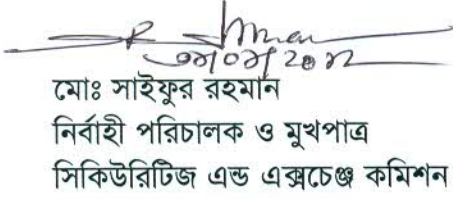 মোঃ সাইফুর রহমান
নির্বাহী পরিচালক ও মুখপাত্র
সিকিউরিটিজ এন্ড এক্সচেঞ্জ কমিশন